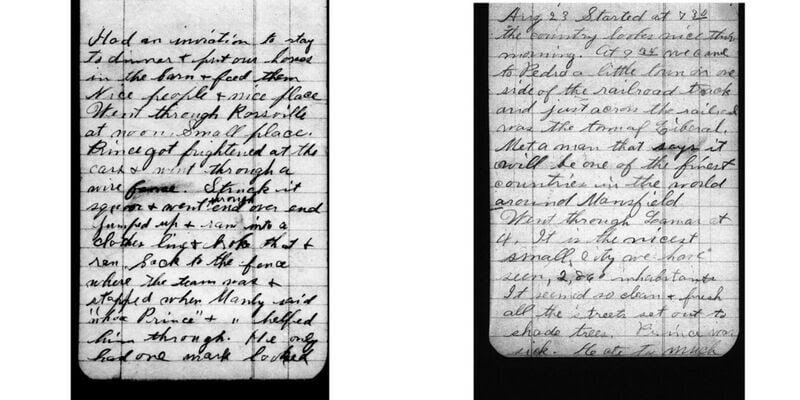 Had an inviation to stay
to dinner & put our horses
in the barn & feed them
Nice people & nice place
Went through Rossville
at noon Small place.
Prince got frightened at the
cars & went through a
wire fence. Struck it
square & went through end over end
jumped up & ran into a
clothes line & broke that &
ran back to the fence
where the team was &
stopped when Manly said
"whoa Prince" & " helped
him through. He only
had one mark looked
Aug 23 Started at 7 30
the country looks nice this
morning. At 9 we came
to Pedro a little town on one
side of the railroad track
and just across the railroad
was the town of Liberal.
Met a man that says it
will be one of the finest
countries in the world
around Mansfield
Went through Lamar at
4. It is the nicest
small city we have
seen, 2,860 inhabitants
It seemed so clean & fresh
all the streets set out to
shade trees. Prince was
sick. He ate to much